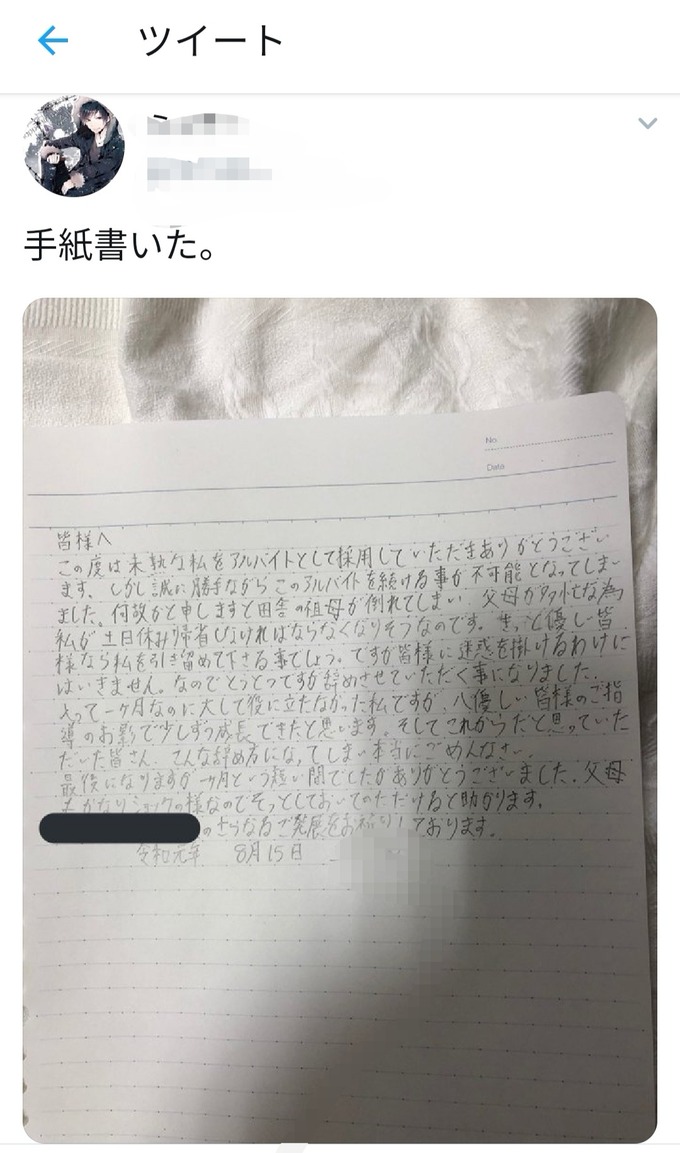 ツイート
手紙書いた。
No.
Date
皆様へ
この度は未熟な私をアルバイトとして採用していただきありがとうござい
ます、しかし誠に勝手ながらこのアルバイトを続ける事が不可能となってしまい
ました。何故かと申しますと田舎の祖母が倒れてしまい 父母が多忙な為
私が土日休み帰省しなければならなくなりそうなのです。きっと優しい皆
様なら私を引き留めて下さる事でしょう。ですが皆様に迷惑を掛けるわけに
はいきません。なのでとうとつですが辞めさせていただく事になりました.
一ヶ月なのに大して役に立たなかった私ですが、優しい皆様のご指
導のお影で少しずつ成長できたと思います。そしてこれからだと思っていた
だいた皆さん、こんな辞め方になってしまい本当にごめんなさい.
最後になりますが一ヶ月という短い間でしたがありがとうございました.父母
もかなりショックの様なのでそっとしておいていただけると助かります.
のさらなるご発展をお祈りしております。
令和元年 8月15日